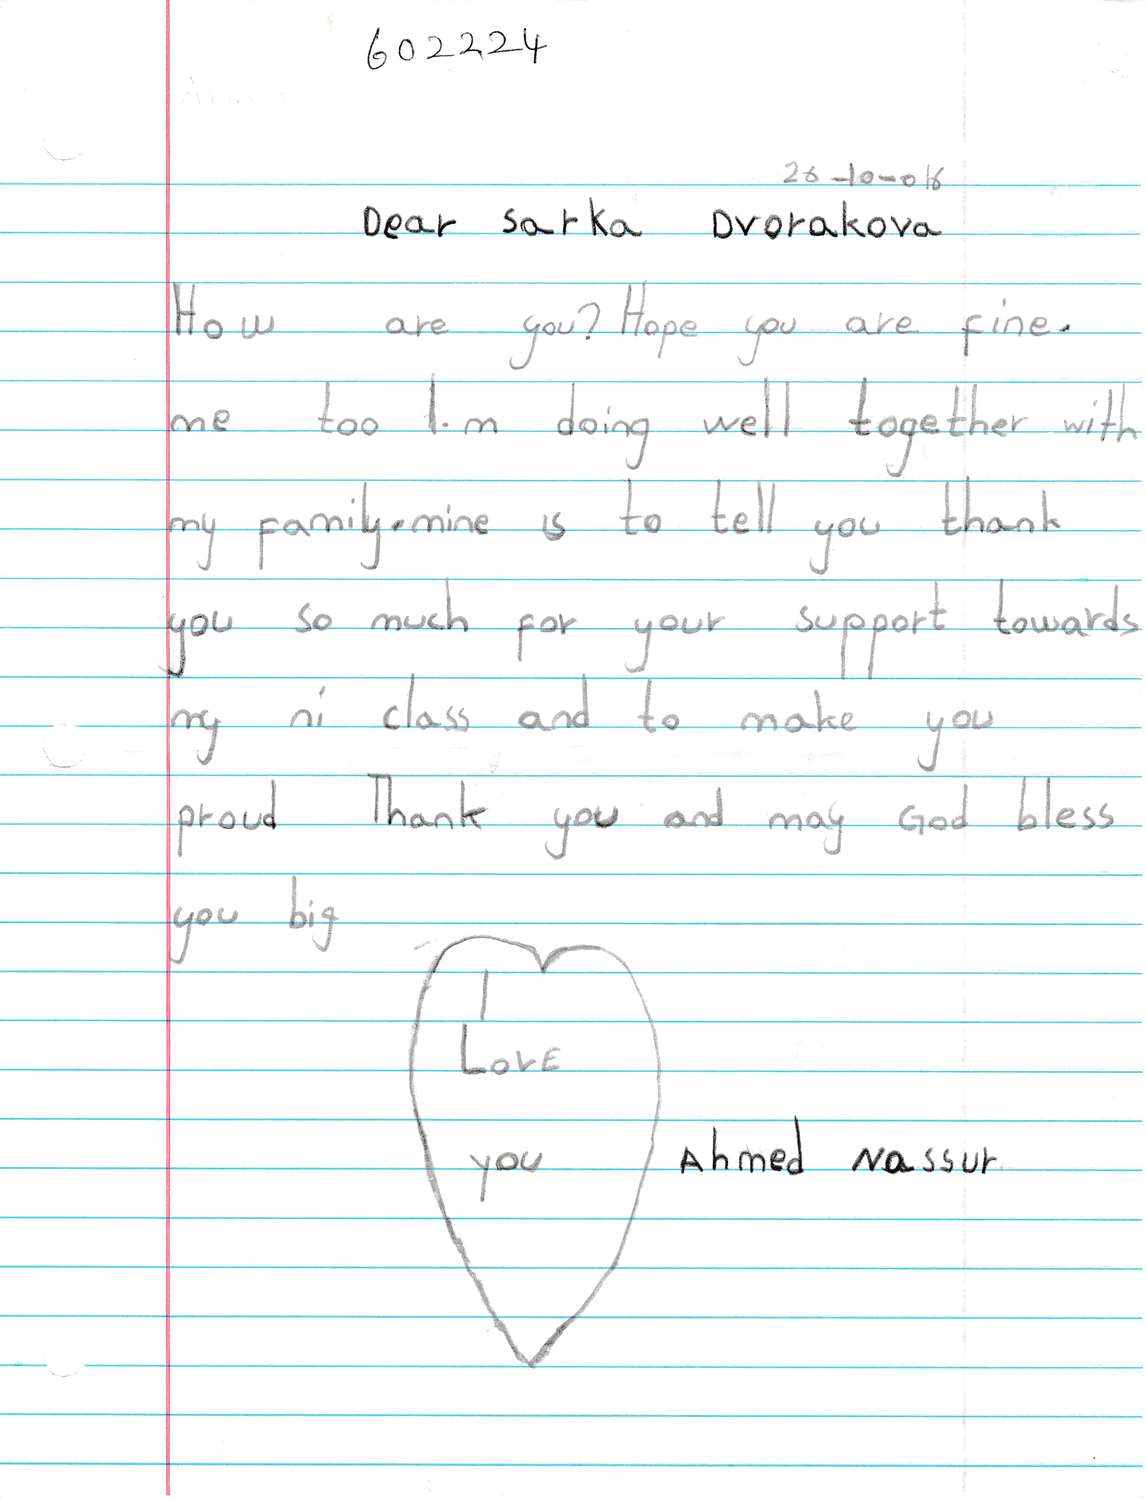 602224
26-10-016
Dear Sarka Dvorakova
How are you? Hope you are fine.
me too I.m doing well together with
my family.mine is to tell you thank
you so much for your support towards
my ni class and to make you
proud Thank you and may God bless
you big
I
LovE
you
Ahmed Nassur